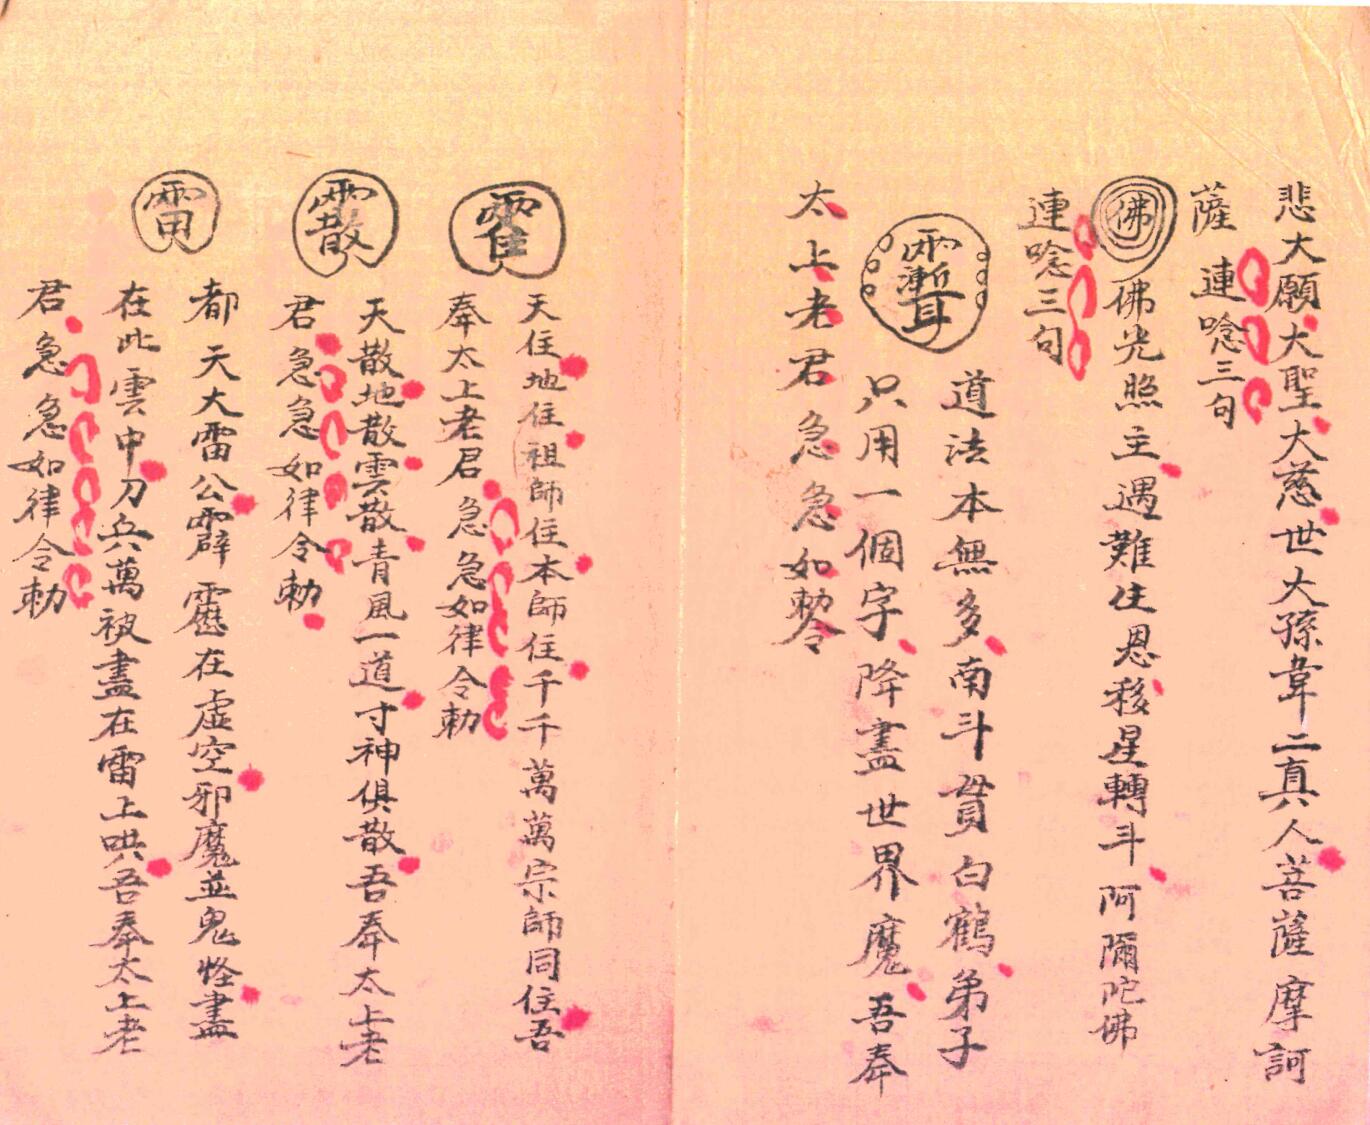 悲大願大聖大慈世大孫韋二真人菩薩摩訶
薩 連唸三句
佛 佛光照主遇難住恩移星轉斗阿彌陀佛
連唸三句
道法本無多南斗貫白鶴弟子
只用一個字降盡世界魔吾奉
太上老君急急如勅令
天住地住祖師住本師住千千萬萬宗師同住吾
奉太上老君急急如律令勅
天散地散雲散青風一道寸神俱散吾奉太上老
君急急如律令勅
雷 都天大雷公霹靂在虛空邪魔並鬼怪盡
在此雲中刀兵萬被盡在雷上哄吾奉太上老
君急急如律令勅